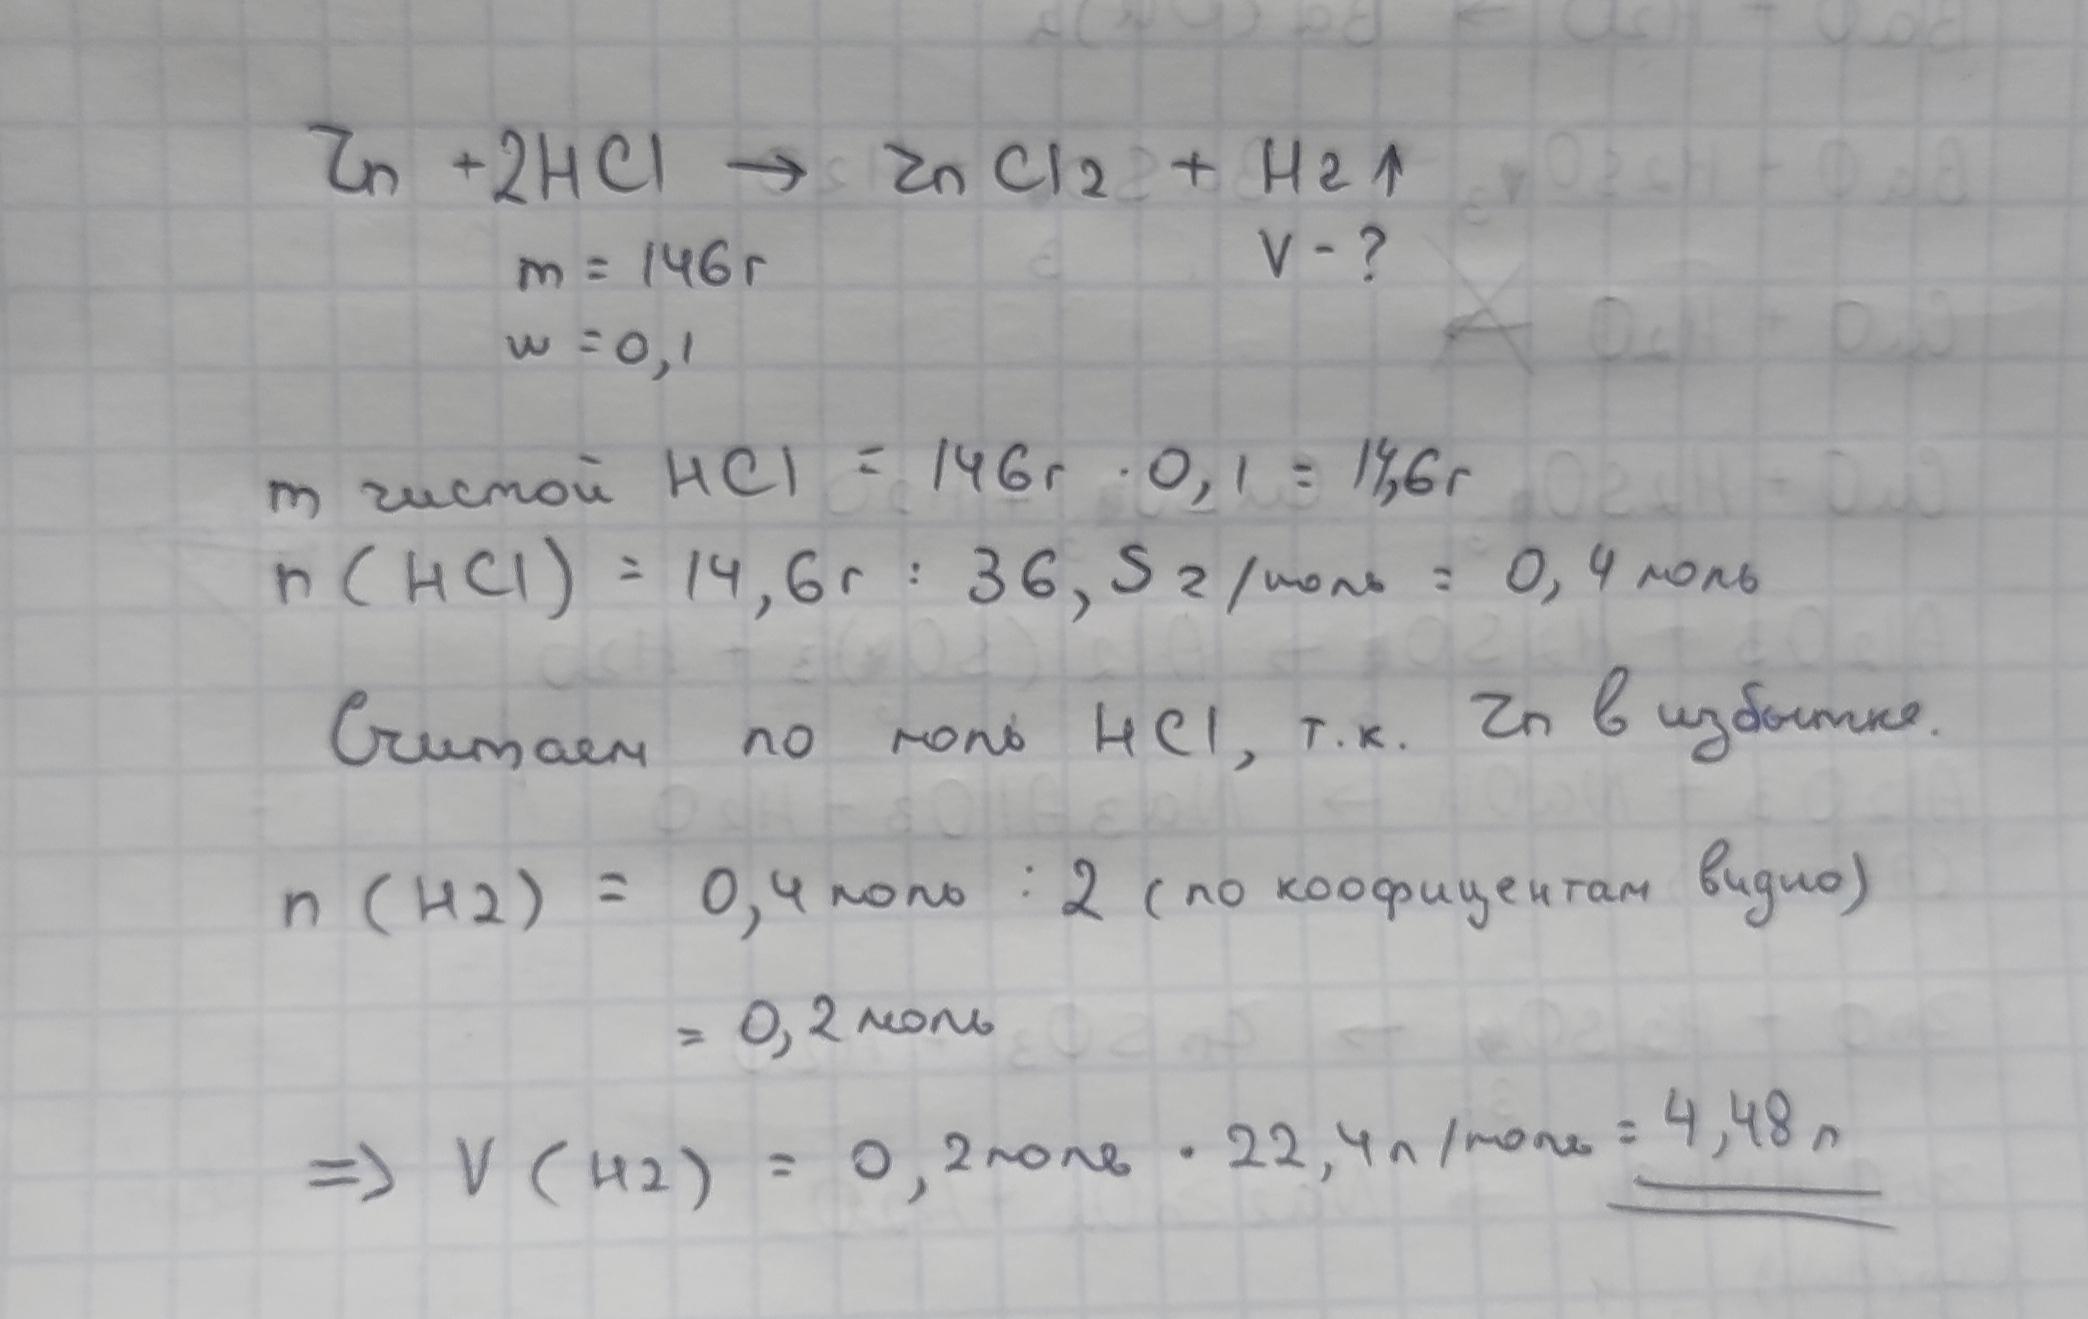 Zn + 2HCl → ZnCl2 + H2↑
m = 146г
V - ?
w = 0,1
m чистой HCl = 146г · 0,1 = 14,6г
n (HCl) = 14,6г : 36,5 г/моль = 0,4 моль
Считаем по моль HCl, т.к. Zn в избытке.
n (H2) = 0,4 моль : 2 (по коофицентам видно)
= 0,2 моль
=> V (H2) = 0,2 моль · 22,4 л/моль = 4,48 л